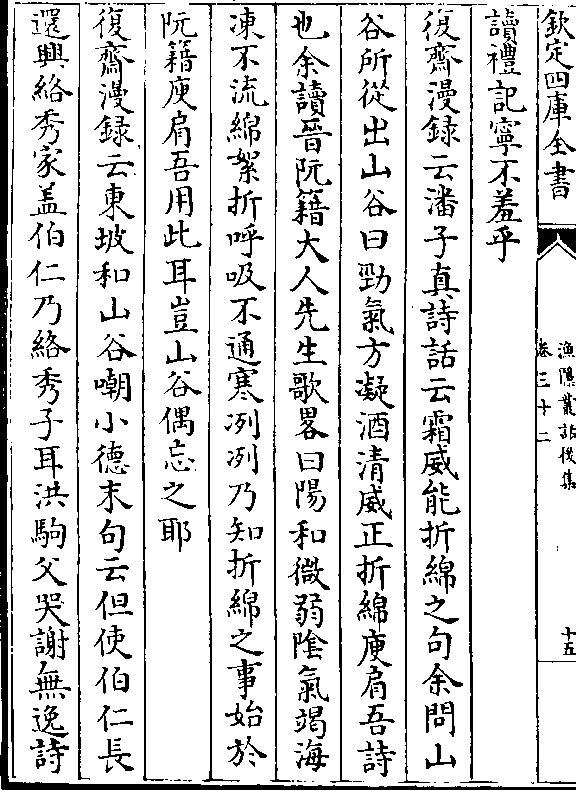 欽定四庫全書
漁隱叢話後集
卷三十二
十五
讀禮記寧不羞乎
復齋漫録云潘子真詩話云霜威能折綿之句余問山
谷所從出山谷曰勁氣方凝酒清威正折綿庾肩吾詩
也余讀晉阮籍大人先生歌畧曰陽和微弱隂氣竭海
凍不流綿絮折呼吸不通寒冽冽乃知折綿之事始於
阮籍庾肩吾用此耳豈山谷偶忘之耶
復齋漫録云東坡和山谷嘲小德末句云但使伯仁長
還興絡秀家盖伯仁乃絡秀子耳洪駒父哭謝無逸詩